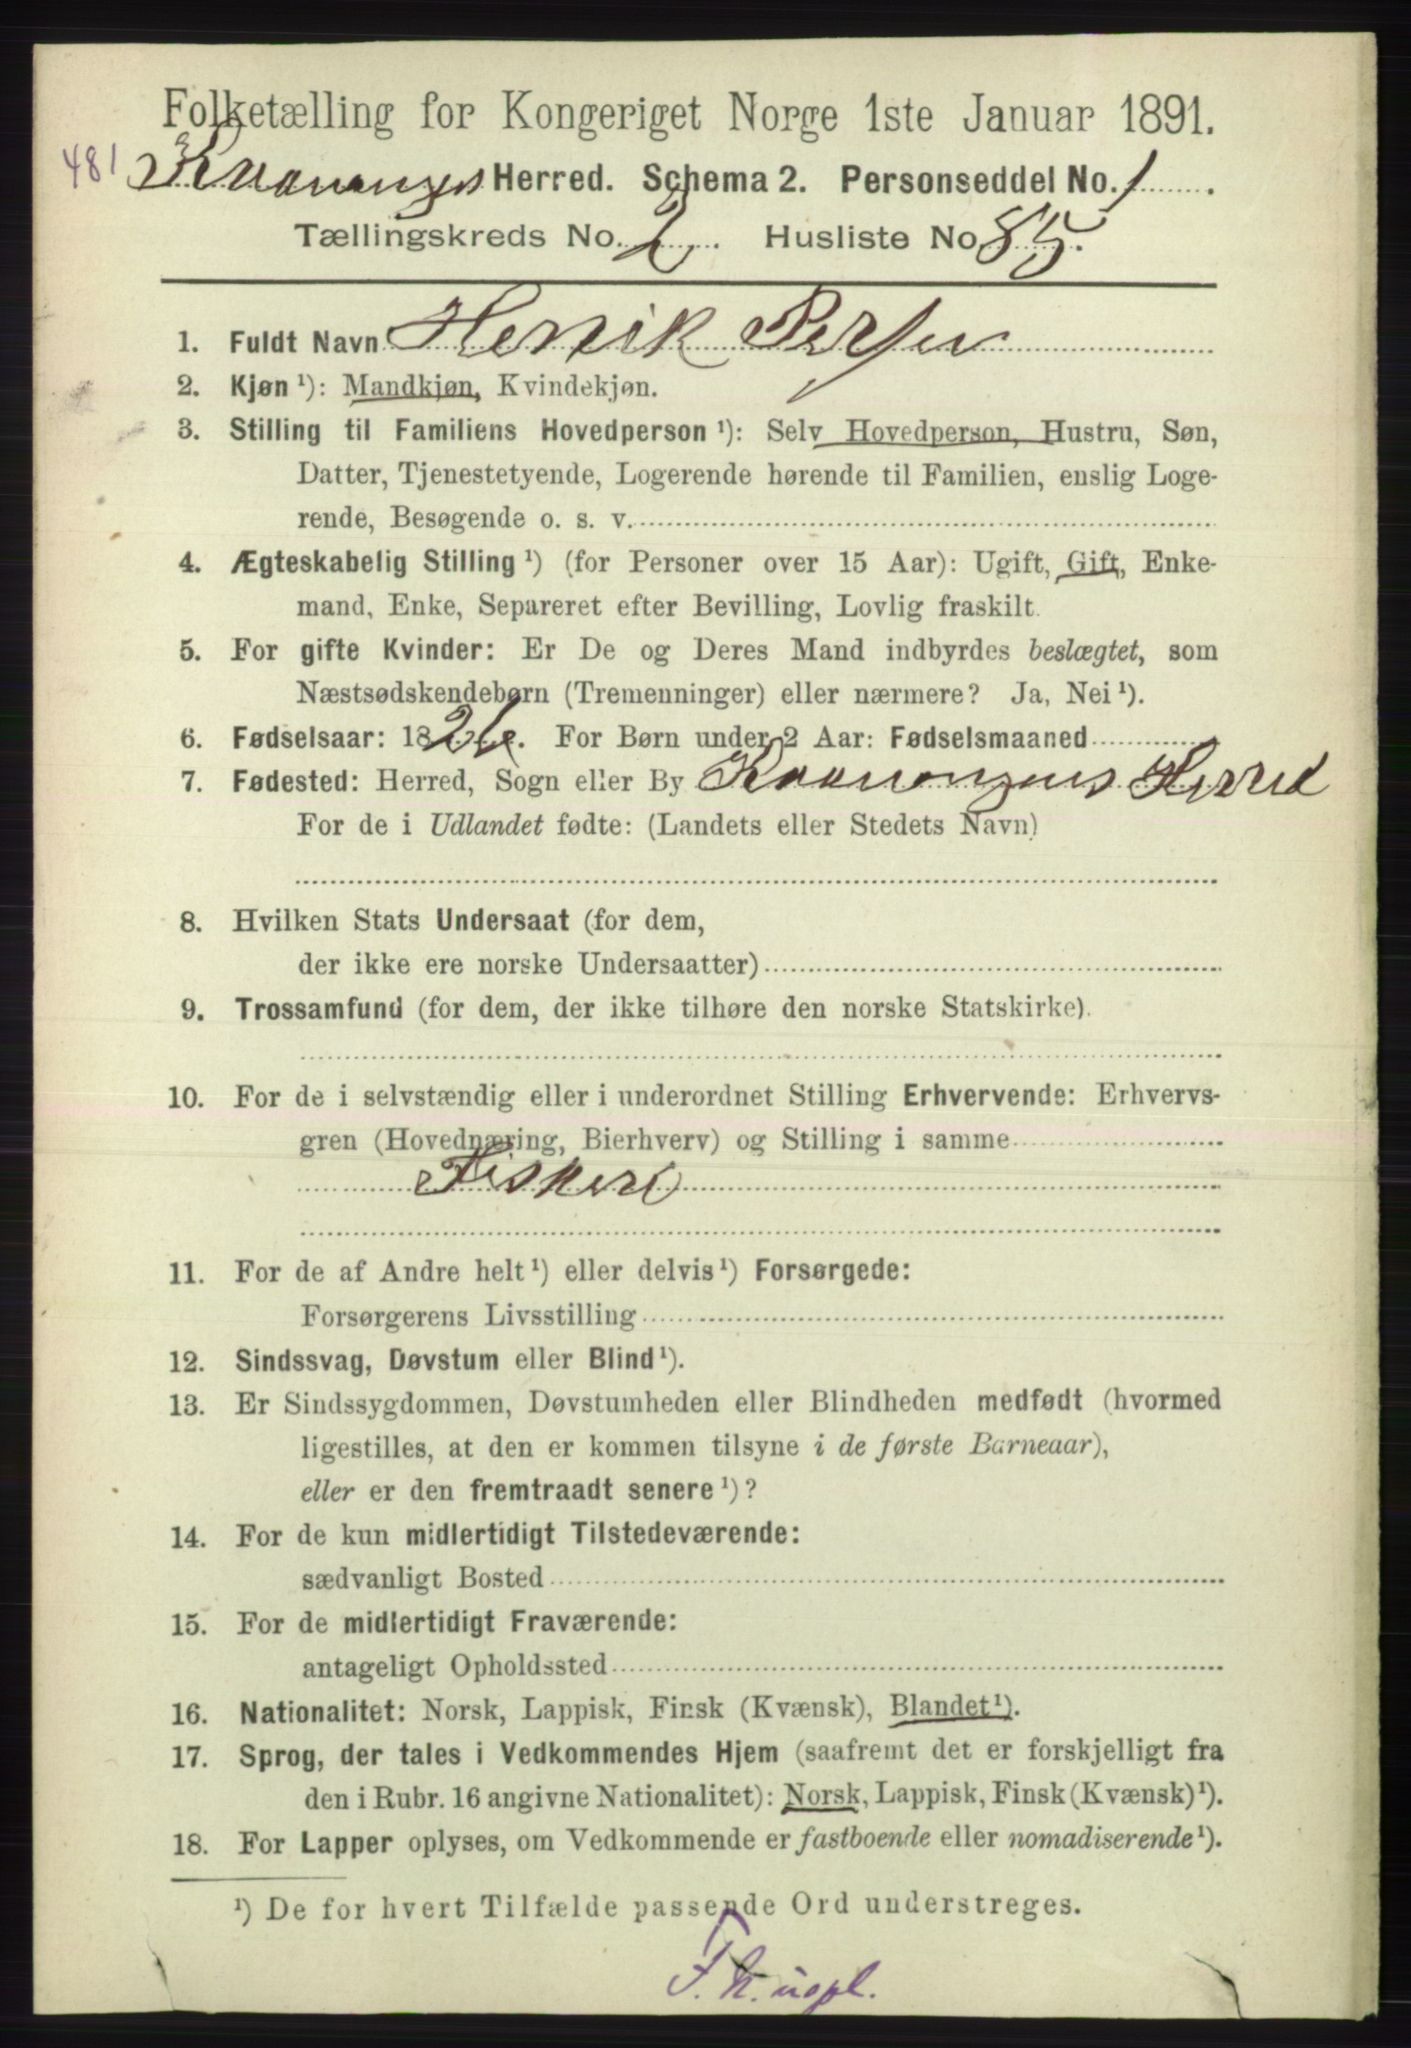 Folketælling for Kongeriget Norge 1ste Januar 1891.
481 Kvænangens Herred. Schema 2. Personseddel No. 1.
Tællingskreds No. 2. Husliste No. 85.
1. Fuldt Navn Henrik Persen
2. Kjøn ¹): Mandkjøn, Kvindekjøn.
3. Stilling til Familiens Hovedperson ¹): Selv Hovedperson, Hustru, Søn,
Datter, Tjenestetyende, Logerende hørende til Familien, enslig Loge-
rende, Besøgende o. s. v.
4. Ægteskabelig Stilling ¹) (for Personer over 15 Aar): Ugift, Gift, Enke-
mand, Enke, Separeret efter Bevilling, Lovlig fraskilt.
5. For gifte Kvinder: Er De og Deres Mand indbyrdes beslægtet, som
Næstsødskendebørn (Tremenninger) eller nærmere? Ja, Nei ¹).
6. Fødselsaar: 1826. For Børn under 2 Aar: Fødselsmaaned
7. Fødested: Herred, Sogn eller By Kvænangens Herred
For de i Udlandet fødte: (Landets eller Stedets Navn)
8. Hvilken Stats Undersaat (for dem,
der ikke ere norske Undersaatter)
9. Trossamfund (for dem, der ikke tilhøre den norske Statskirke).
10. For de i selvstændig eller i underordnet Stilling Erhvervende: Erhvervs-
gren (Hovednæring, Bierhverv) og Stilling i samme
Fisker
11. For de af Andre helt ¹) eller delvis ¹) Forsørgede:
Forsørgerens Livsstilling
12. Sindssvag, Døvstum eller Blind ¹).
13. Er Sindssygdommen, Døvstumheden eller Blindheden medfødt (hvormed
ligestilles, at den er kommen tilsyne i de første Barneaar),
eller er den fremtraadt senere ¹)?
14. For de kun midlertidigt Tilstedeværende:
sædvanligt Bosted
15. For de midlertidigt Fraværende:
antageligt Opholdssted
16. Nationalitet: Norsk, Lappisk, Finsk (Kvænsk), Blandet ¹).
17. Sprog, der tales i Vedkommendes Hjem (saafremt det er forskjelligt fra
den i Rubr. 16 angivne Nationalitet): Norsk, Lappisk, Finsk (Kvænsk) ¹).
18. For Lapper oplyses, om Vedkommende er fastboende eller nomadiserende ¹).
¹) De for hvert Tilfælde passende Ord understreges.